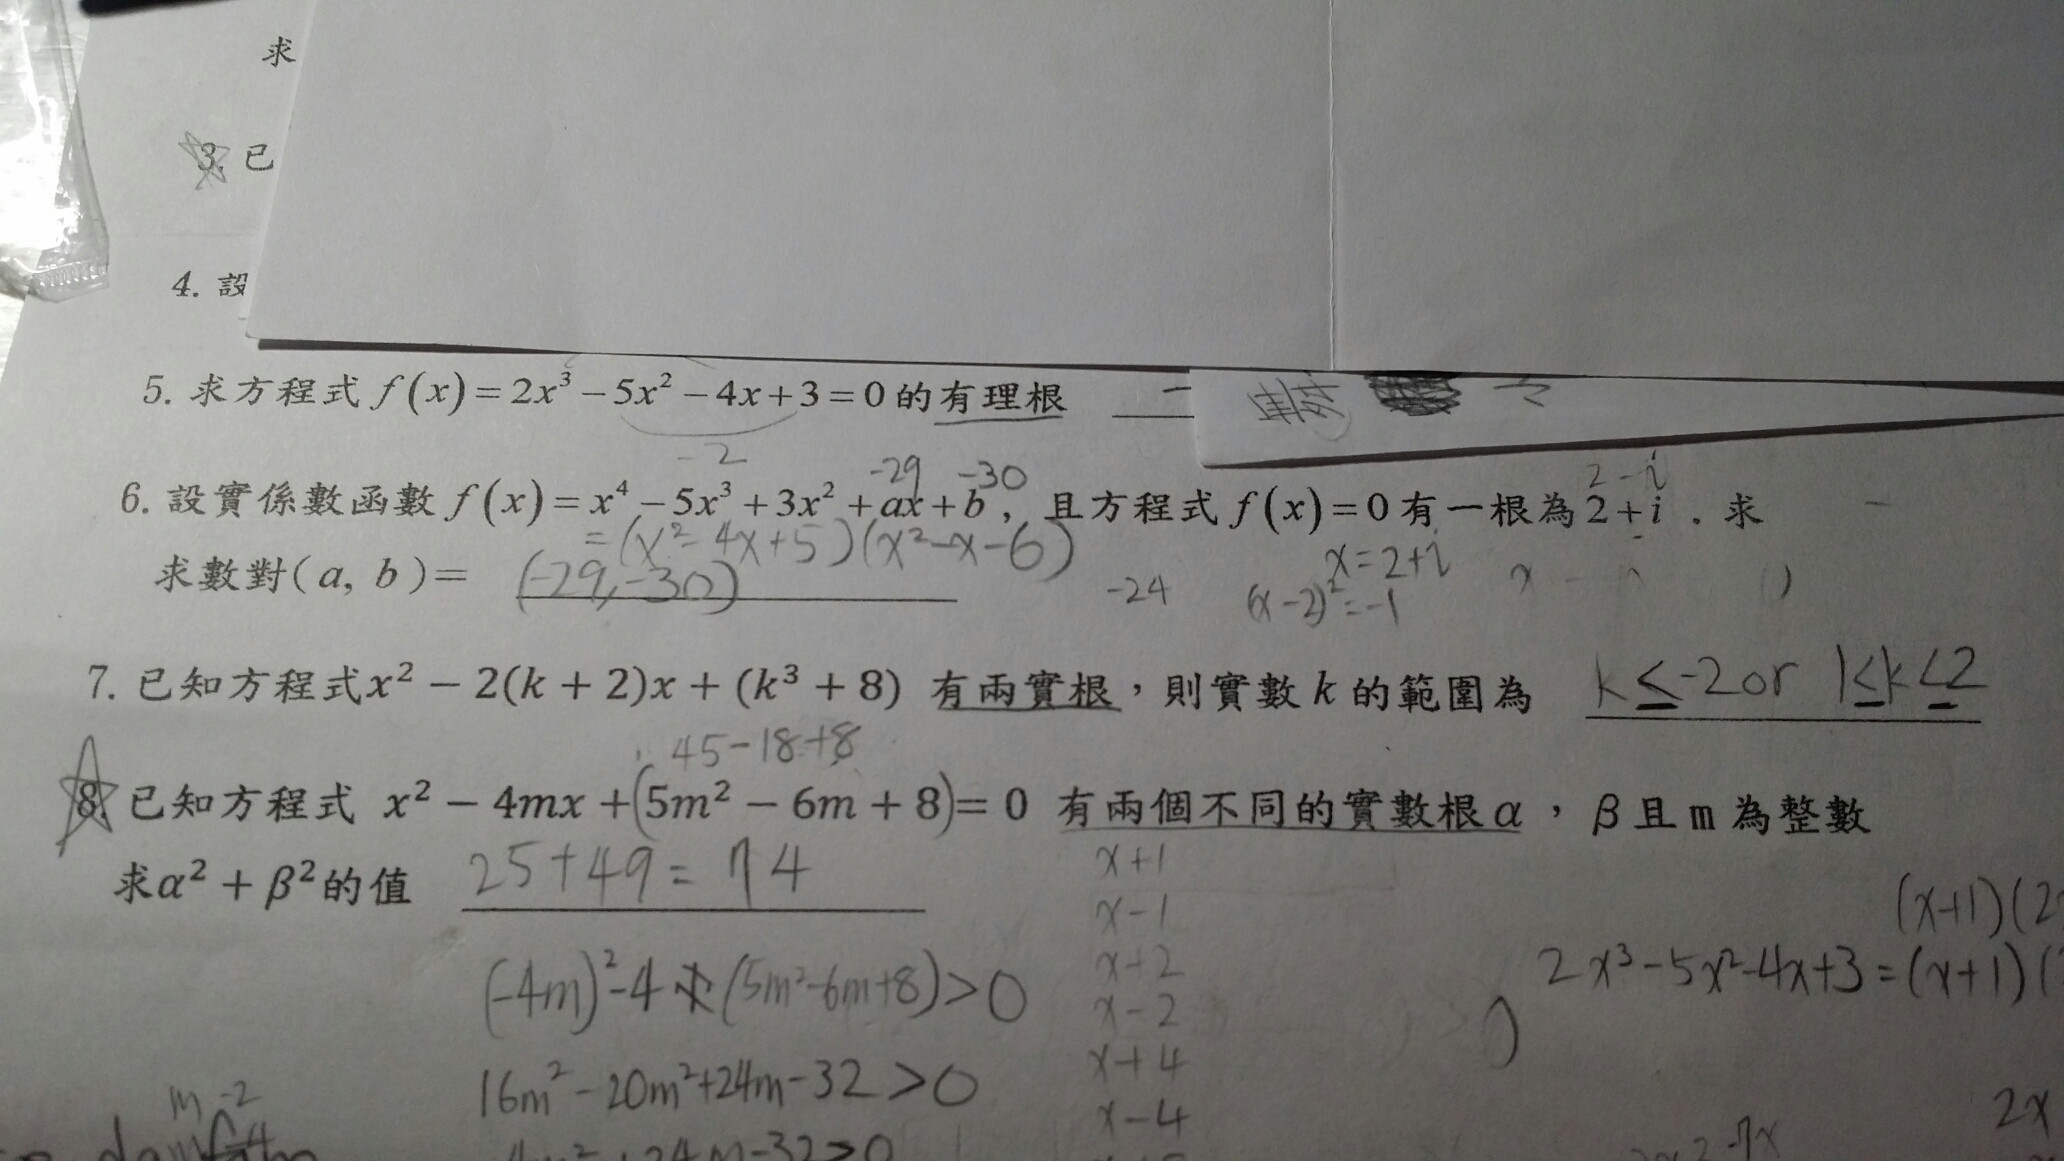 求
3. 已
4. 設
5. 求方程式 f(x)=2x³-5x²-4x+3=0 的有理根
-2
-29 -30
2-i
6. 設實係數函數 f(x)=x⁴-5x³+3x²+ax+b, 且方程式 f(x)=0 有一根為 2+i . 求
=(x²-4x+5)(x²-x-6)
x=2+i
求數對(a, b)= (-29,-30)
-24
(x-2)²=-1
7. 已知方程式x² - 2(k + 2)x + (k³ + 8) 有兩實根，則實數 k 的範圍為 k≤-2 or 1≤k≤2
45-18+8
8. 已知方程式 x² - 4mx +(5m² - 6m + 8)= 0 有兩個不同的實數根α，β且m為整數
求α² + β²的值 25+49=74
x+1
x-1
(x+1)(2
x+2
2x³-5x²-4x+3=(x+1)(
(-4m)²-4(5m²-6m+8)>0
x-2
x+4
16m²-20m²+24m-32>0
m -2
x-4
2x
-7x
+24m-32>0